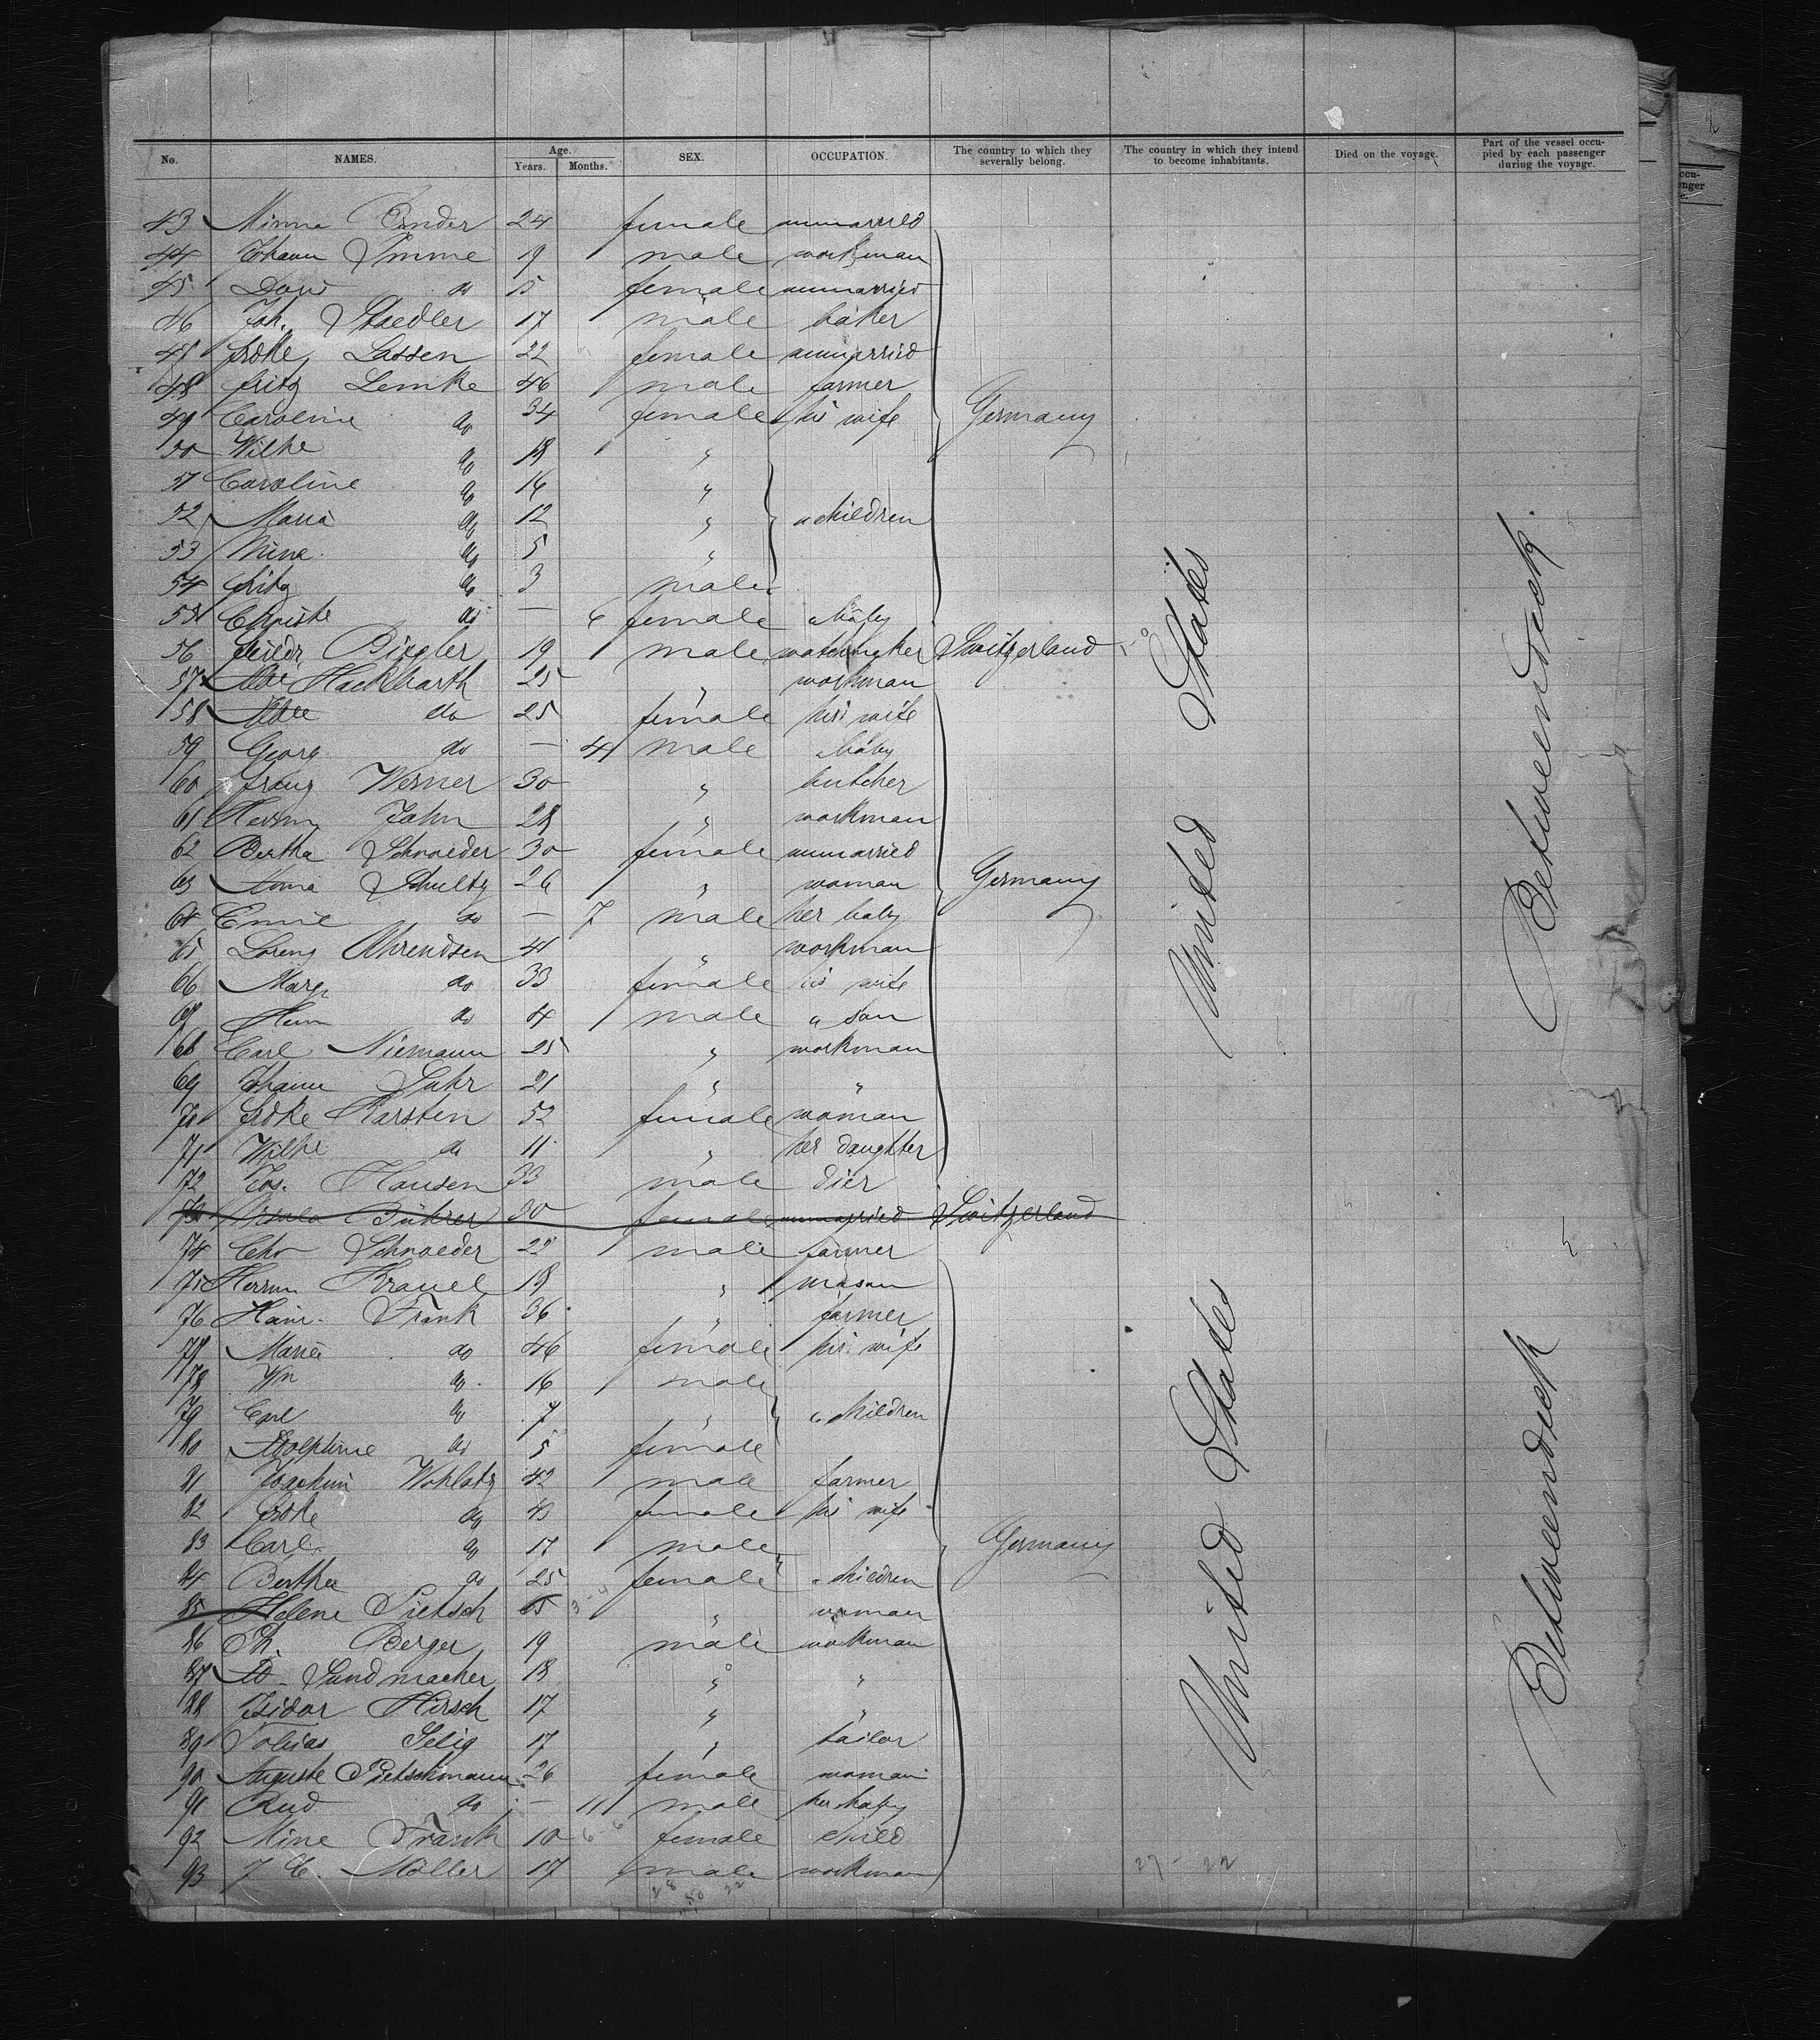 No. NAMES. Age. Years. Months. SEX. OCCUPATION. The country to which they severally belong. The country in which they intend to become inhabitants. Died on the voyage. Part of the vessel occupied by each passenger during the voyage.
43 Minna 24 female unmarried
44 Johann Imme 19 male workman
45 do 15 female unmarried
46 Joh. Staedler 17 male baker
47 Lassen 22 female unmarried
48 Fritz Lemke 46 male farmer
49 Caroline do 34 female his wife Germany
50 Wilhe do 18 "
51 Caroline do 16 "
52 Maria do 12 " " children
53 Mina do 5 "
54 Fritz do 3 male
55 Christe do — 6 female " baby
56 Biegler 19 male watchmaker Switzerland
57 Hackbarth 25 " workman
58 do 25 female his wife
59 Georg do — 4 male " baby
60 Franz Werner 30 " butcher
61 Herrm Jahn 28 " workman
62 Bertha Schroeder 30 female unmarried
63 Anna Schultz 26 " woman Germany
64 do — 7 male her baby
65 Lorenz Ahrendsen 41 " workman
66 Marg do 33 female his wife
67 do 4 male " son
68 Carl Niemann 25 " workman
69 Johann Suhr 21 " "
70 Karsten 52 female woman
71 Wilhe do 11 " her daughter
72 Jos. Hansen 33 male dier
73 Bührer 30 female unmarried Switzerland
74 Chr Schroeder 22 male farmer
75 Herrm Krauel 18 " mason
76 Heinr. Frank 36 " farmer
77 Marie do 46 female his wife
78 Wm do 16 male
79 Carl do 7 " " children
80 Adolphine do 5 female
81 Joachim Wohlatz 42 male farmer
82 do female his wife
83 Carl do 17 male Germany
84 Bertha do 25 female " children
85 Helene Pietsch " woman
86 Ph. Berger 19 male workman
87 Sundmacher 18 " "
88 Isidor Hirsch 17 " "
89 Tobias Selig 17 " tailor
90 Auguste Pietschmann 26 female woman
91 Rud do — 11 male her baby
92 Mine Frank 10 female child
93 J C. Möller 17 male workman
United States
United States
Betweendeck
Betweendeck
27 - 22